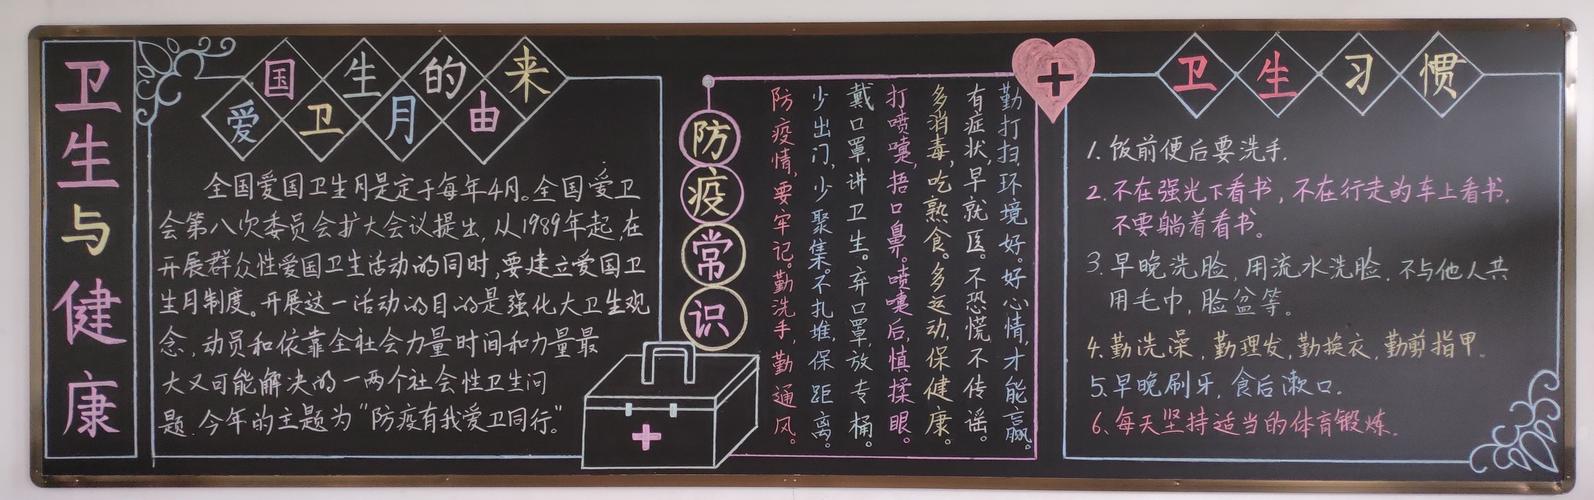 卫生与健康
爱国卫生月的由来
全国爱国卫生月是定于每年4月。全国爱卫
会第八次委员会扩大会议提出,从1989年起,在
开展群众性爱国卫生活动的同时,要建立爱国卫
生月制度。开展这一活动的目的是强化大卫生观
念,动员和依靠全社会力量时间和力量最
大又可能解决的一两个社会性卫生问
题.今年的主题为“防疫有我爱卫同行”
防疫常识
防疫情,要牢记。勤洗手,勤通风。
少出门,少聚集。不扎堆,保距离。
戴口罩,讲卫生。弃口罩,放专桶。
打喷嚏,捂口鼻。喷嚏后,慎揉眼。
多消毒,吃熟食。多运动,保健康。
有症状,早就医。不恐慌,不传谣。
勤打扫,环境好。好心情,才能赢。
卫生习惯
1.饭前便后要洗手.
2.不在强光下看书,不在行走的车上看书,
不要躺着看书。
3.早晚洗脸,用流水洗脸.不与他人共
用毛巾,脸盆等。
4.勤洗澡,勤理发,勤换衣,勤剪指甲。
5.早晚刷牙,食后漱口.
6、每天坚持适当的体育锻炼.